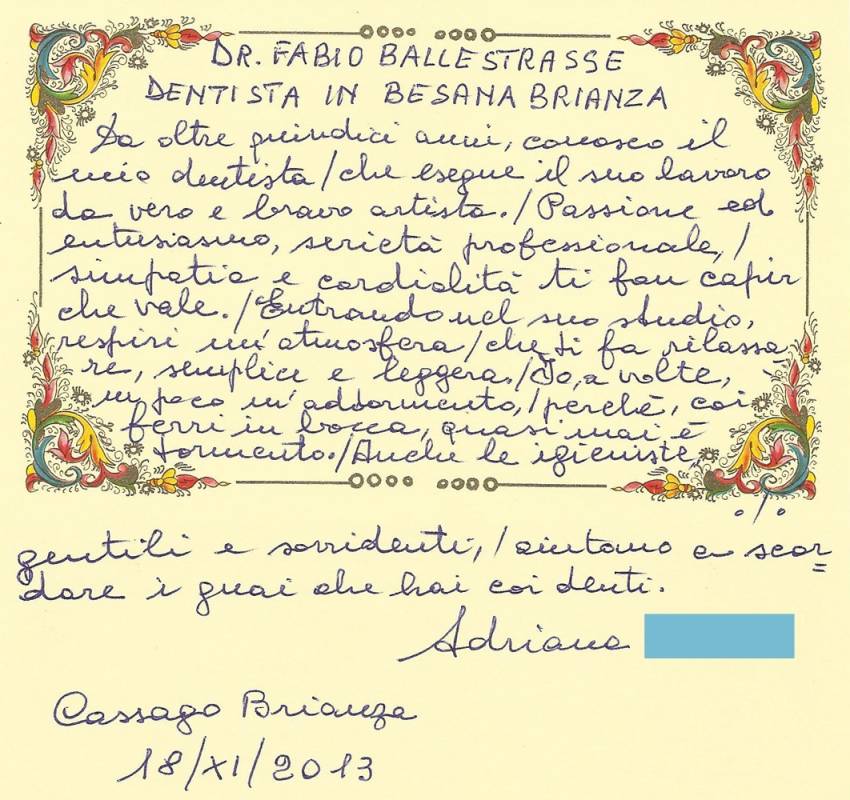 DR. FABIO BALLESTRASSE
DENTISTA IN BESANA BRIANZA
Da oltre quindici anni, conosco il
mio dentista / che esegue il suo lavoro
da vero e bravo artista. / Passione ed
entusiasmo, serietà professionale, /
simpatia e cordialità ti fan capir
che vale. / Entrando nel suo studio,
respiri un'atmosfera / che ti fa rilassa-
re, semplice e leggera. / Io, a volte,
un poco m'addormento, / perché, coi
ferri in bocca, quasi mai è
tormento. / Anche le igieniste,
./.
gentili e sorridenti, / aiutano a scor=
dare i guai che hai coi denti.
Adriana
Cassago Brianza
18/XI/2013